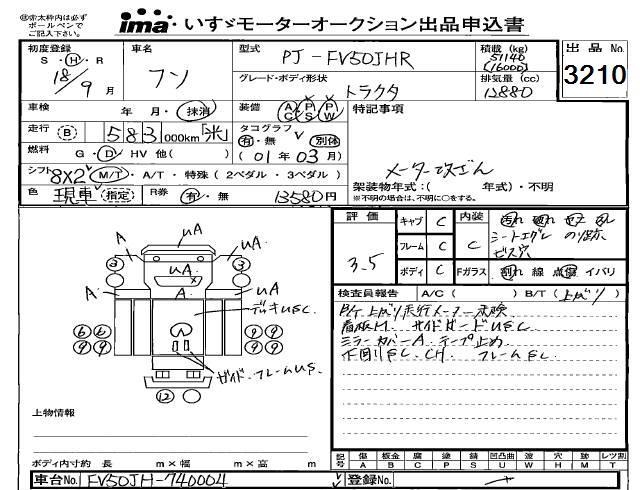 ㊟※太枠内は必ず
ボールペンで
ご記入下さい。
ima・いすゞモーターオークション出品申込書
初度登録
S・H・R
18年9月
車名
フソ
型式
PJ-FV50JHR
グレード・ボディ形状
トラクタ
積載(kg)
51140
(16000)
排気量(cc)
12880
出品No.
3210
車検 年 月・抹消
装備 AC PS PW
特記事項
走行 B 583,000km 米
タコグラフ
有・無 別体
(01年03月)
燃料 G・D・HV 他( )
シフト 8X2 M/T・A/T・特殊(2ペダル・3ペダル)
メーター改ざん
架装物年式:( 年式)・不明
※不明の場合は、不明に○をする。
色 現車 指定
R券 有・無 13580円
評価
3.5
キャブ C
フレーム C
ボディ C
内装
C
Fガラス
汚れ 破れ
シートエグレ
ビス穴
割れ 線 点傷 イバリ
検査員報告 A/C( ) B/T(上がり)
看板H. サイドガードUEC
ミラーカバーA テープ止め
下回りEC. CH. フレームEC
A
UA
A
UA
3
A
A
UA
デッキUEC
6 6
9 9
サイド、フレームUS.
12
上物情報
ボディ内寸約 長 m×幅 m×高 m
記号
傷 板金 腐 塗 錆 凹凸曲 波 穴 跡 レツ割
A B C P S U W H M T
車台No. FV50JH-740004
登録No.